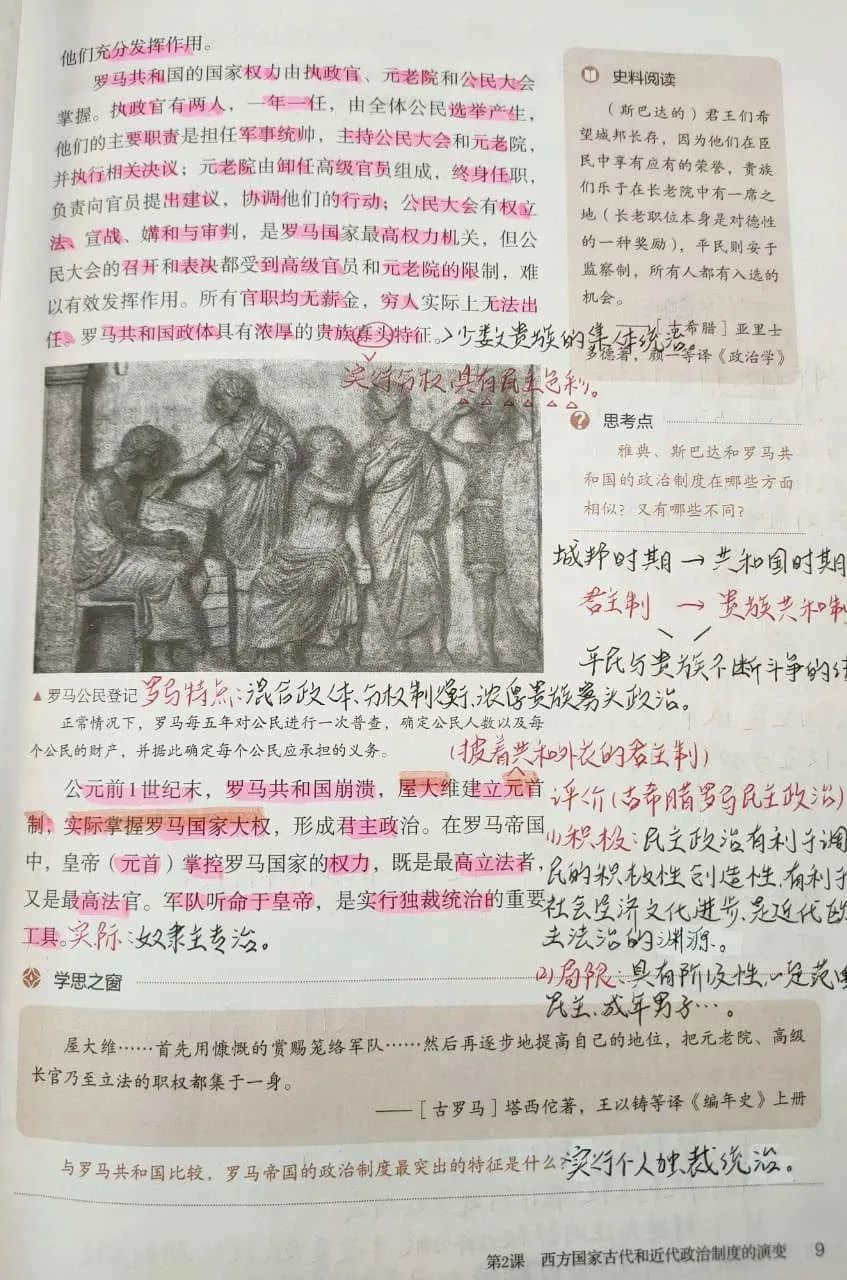 他们充分发挥作用。
罗马共和国的国家权力由执政官、元老院和公民大会
掌握。执政官有两人，一年一任，由全体公民选举产生，
他们的主要职责是担任军事统帅，主持公民大会和元老院，
并执行相关决议；元老院由卸任高级官员组成，终身任职，
负责向官员提出建议，协调他们的行动；公民大会有权立
法、宣战、媾和与审判，是罗马国家最高权力机关，但公
民大会的召开和表决都受到高级官员和元老院的限制，难
以有效发挥作用。所有官职均无薪金，穷人实际上无法出
任。罗马共和国政体具有浓厚的贵族寡头特征。
少数贵族的集体统治。
实行分权 具有民主色彩。
史料阅读
（斯巴达的）君王们希
望城邦长存，因为他们在臣
民中享有应有的荣誉，贵族
们乐于在长老院中有一席之
地（长老职位本身是对德性
的一种奖励），平民则安于
监察制，所有人都有入选的
机会。
——［古希腊］亚里士
多德著，颜一等译《政治学》
思考点
雅典、斯巴达和罗马共
和国的政治制度在哪些方面
相似？又有哪些不同？
城邦时期→共和国时期
君主制 → 贵族共和制
平民与贵族不断斗争的
▲罗马公民登记
罗马特点：混合政体、分权制衡、浓厚贵族寡头政治。
正常情况下，罗马每五年对公民进行一次普查，确定公民人数以及每
个公民的财产，并据此确定每个公民应承担的义务。
（披着共和外衣的君主制）
公元前1世纪末，罗马共和国崩溃，屋大维建立元首
制，实际掌握罗马国家大权，形成君主政治。在罗马帝国
中，皇帝（元首）掌控罗马国家的权力，既是最高立法者，
又是最高法官。军队听命于皇帝，是实行独裁统治的重要
工具。实际：奴隶主专治。
评价（古希腊罗马民主政治）
(1)积极：民主政治有利于调
民的积极性创造性，有利于
社会经济文化进步，是近代民
主法治的渊源。
(2)局限：具有阶级性，一定范围
民主、成年男子…。
学思之窗
屋大维……首先用慷慨的赏赐笼络军队……然后再逐步地提高自己的地位，把元老院、高级
长官乃至立法的职权都集于一身。
——［古罗马］塔西佗著，王以铸等译《编年史》上册
与罗马共和国比较，罗马帝国的政治制度最突出的特征是什么？实行个人独裁统治。
第2课 西方国家古代和近代政治制度的演变 9